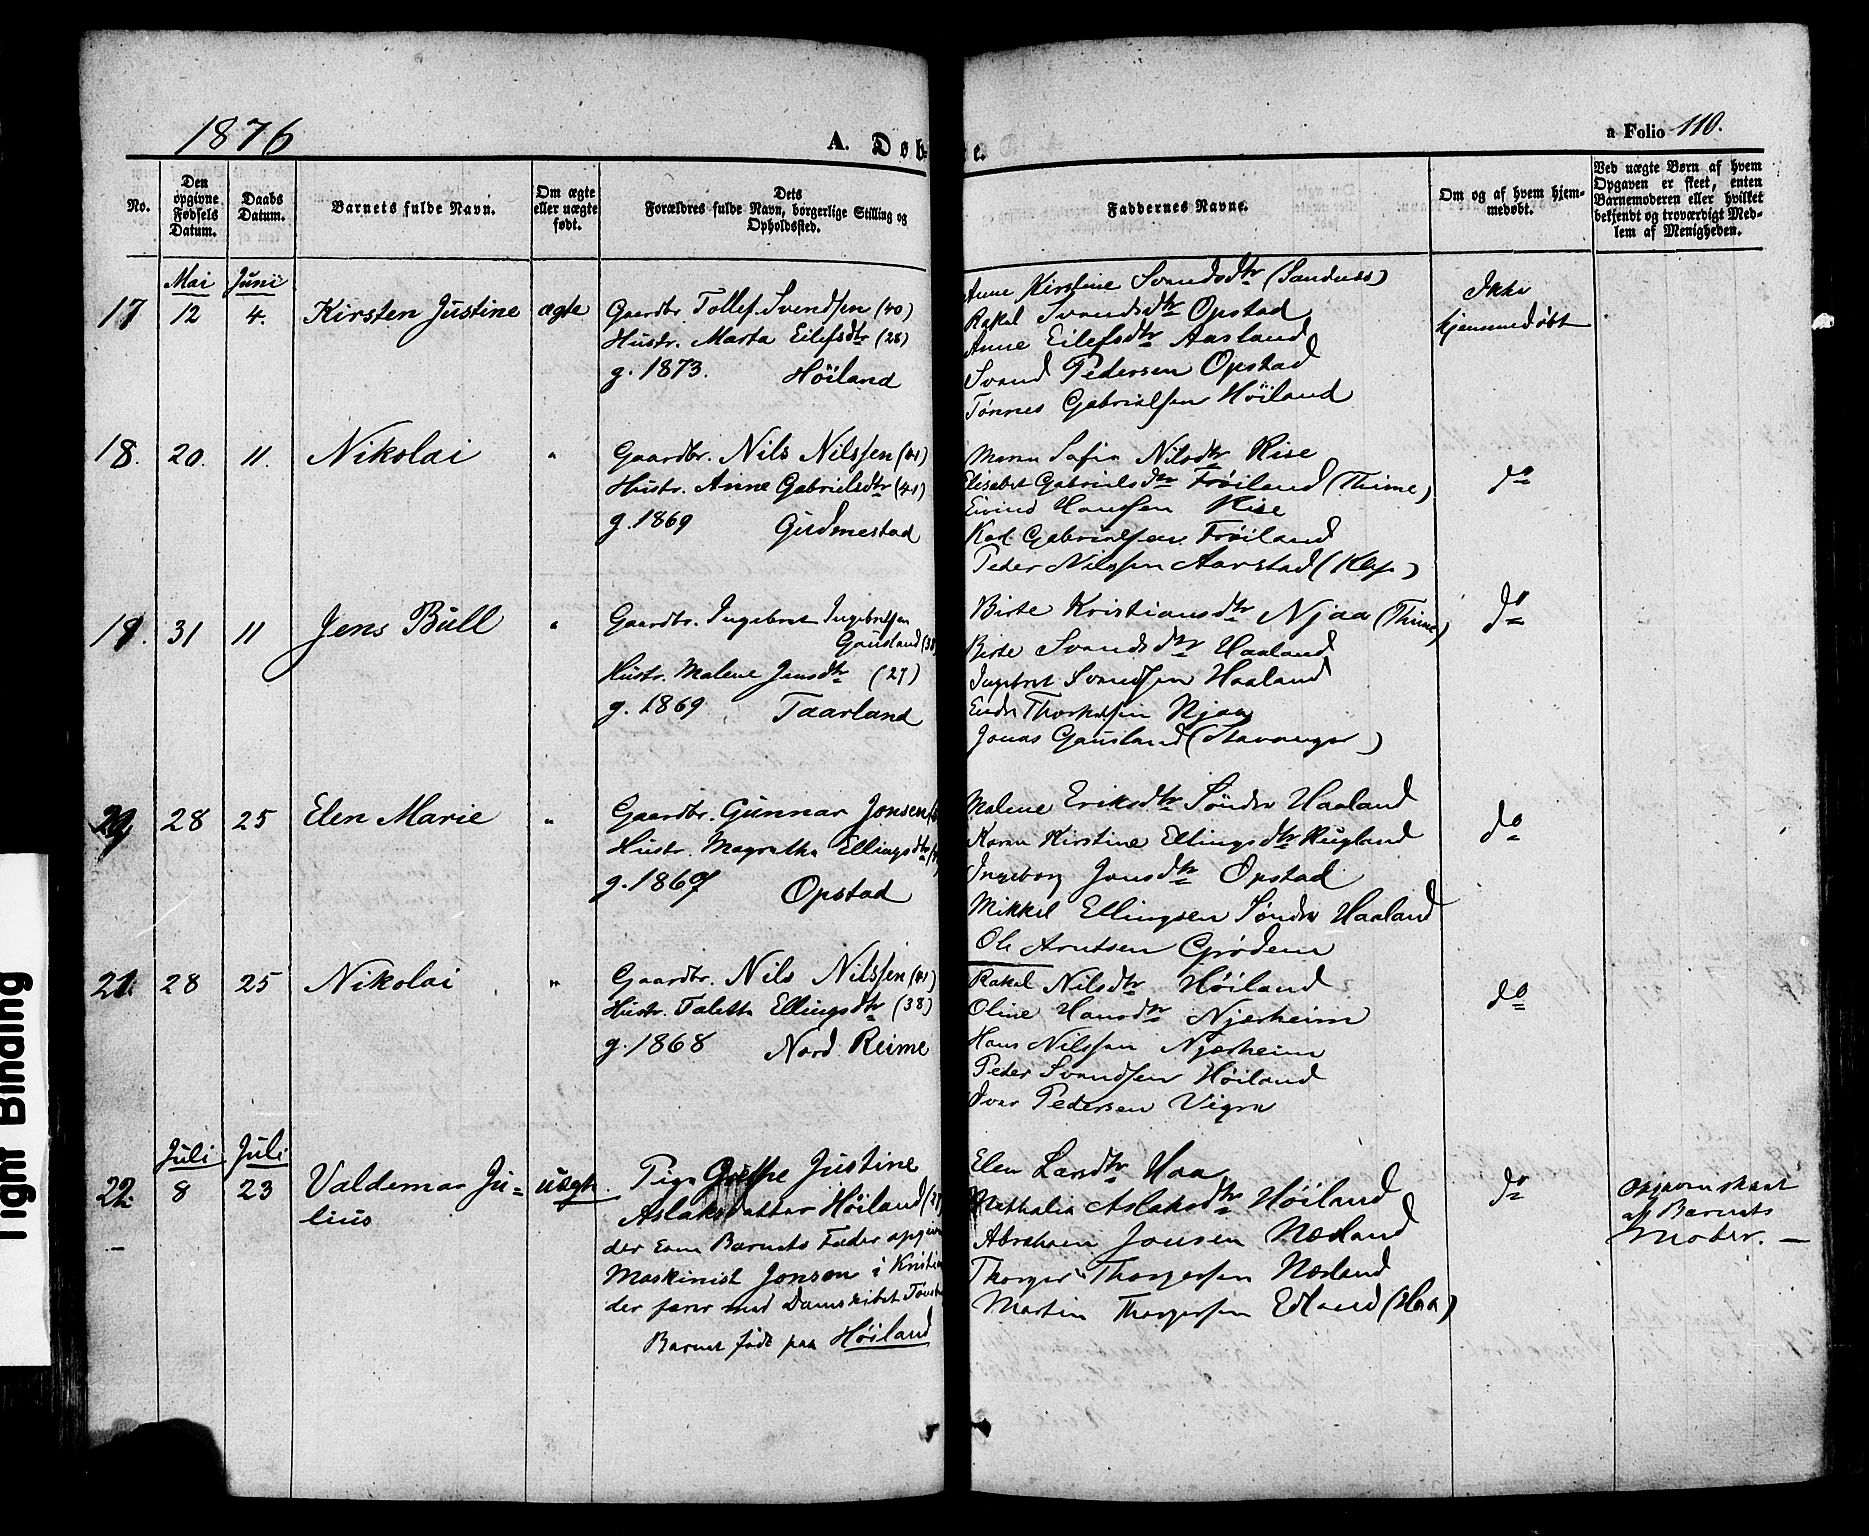 1876
A. Døb-
te.
a Folio 110.
No.
Den opgivne Fødsels Datum.
Daabs Datum.
Barnets fulde Navn.
Om ægte eller uægte født.
Dets Forældres fulde Navn, borgerlige Stilling og Opholdssted.
Faddernes Navne.
Om og af hvem hjemmedøbt.
Ved uægte Børn af hvem Opgaven er skeet, enten Barnemoderen eller hvilket bekjendt og troværdigt Medlem af Menigheden.
Mai Juni
17 12 4. Kirsten Justine ægte
Gaardbr. Tollef Svendsen (40)
Hustr. Marta Eilefsdtr (28)
g. 1873. Höiland
Anne Kirstine Svendsdtr (Sandnes)
Rakel Svendsdtr Opstad
Anne Eilefsdtr Aasland
Svend Pedersen Opstad
Tönnes Gabrielsen Höiland
Ikke
hjemmedøbt
18. 20. 11. Nikolai "
Gaardbr. Nils Nilssen (41)
Hustr. Anne Gabrielsdtr (41)
g. 1869 Gudmestad
Maren Sofia Nilsdtr Rise
Elisabet Gabrielsdtr Fröiland (Thime)
Eivind Hanssen Rise
Karl Gabrielsen Fröiland
Peder Nilssen Aarstad (Klep)
do
19. 31 11 Jens Bull "
Gaardbr. Ingebret Ingebretsen
Gausland (38)
Hustr. Malene Jensdtr (27)
g. 1869 Taarland
Birte Kristiansdtr Njaa (Thime)
Birte Svendsdtr Haaland
Ingebret Svendsen Haaland
Endre Thorkelsen Njaa
Jonas Gausland (Stavanger)
do
20 28 25 Elen Marie "
Gaardbr. Gunnar Jonsen
Hustr. Magretha Ellingsdtr
g. 1867 Opstad
Malene Eriksdtr Söndre Haaland
Karen Kirstine Ellingsdtr Hugland
Ingeborg Jonsdtr Opstad
Mikkel Ellingsen Söndre Haaland
Ole Arntsen Grödem
do
21. 28 25 Nikolai "
Gaardbr. Nils Nilssen (41)
Hustr. Taletta Ellingsdtr (38)
g. 1868 Nord Reime
Rakel Nilsdtr Höiland
Oline Hansdtr Njærheim
Hans Nilssen Njærheim
Peder Svendsen Höiland
Ivar Pedersen Vigre
do
Juli Juli
22. 8 23 Valdemar Ju-
lius
uægte
Pige Grethe Justine
Aslaksdatter Höiland
der som Barnets Fader opgiver
Maskinist Jonsen i
der farer med Damskibet
Barnet født paa Höiland
Elen Larsdtr Haa
Nathalia Aslaksdtr Höiland
Abraham Jonsen Nærland
Thorger Thorgersen Nærland
Martin Thorgersen Edland (Haa)
do
Opgaven skeet
af Barnets
Moder. —
Tight Binding